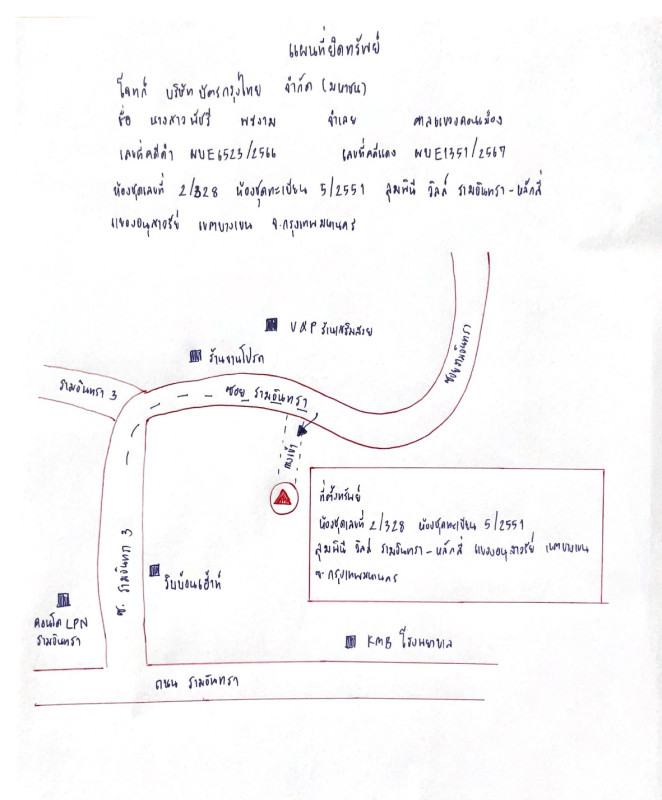 แผนที่ยึดทรัพย์
โจทก์ บริษัท บัตรกรุงไทย จำกัด (มหาชน)
ชื่อ นางสาว พัชรี พชงาม จำเลย ศาลแขวงดอนเมือง
เลขที่คดีดำ ผบE6523/2566 เลขที่คดีแดง ผบE1351/2567
ห้องชุดเลขที่ 2/328 ห้องชุดทะเบียน 5/2551 ลุมพินี วิลล์ รามอินทรา-หลักสี่
แขวงอนุสาวรีย์ เขตบางเขน จ.กรุงเทพมหานคร
V&P ร้านเสริมสวย
ร้านงานโปรด
ซอยรามอินทรา
รามอินทรา 3
ซอย รามอินทรา
ทางเข้า
ที่ตั้งทรัพย์
ห้องชุดเลขที่ 2/328 ห้องชุดทะเบียน 5/2551
ลุมพินี วิลล์ รามอินทรา-หลักสี่ แขวงอนุสาวรีย์ เขตบางเขน
จ.กรุงเทพมหานคร
ซ. รามอินทรา 3
ริบบ้อนเฮ้าท์
คอนโด LPN
รามอินทรา
KMB โรงพยาบาล
ถนน รามอินทรา